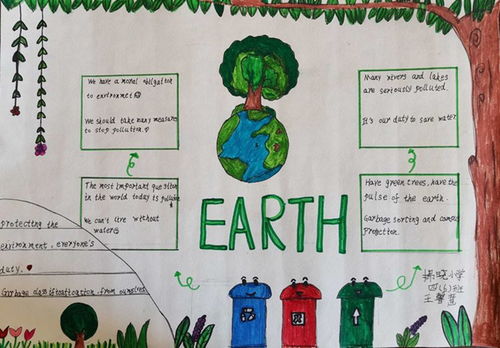 We have a moral obligation
to environmet
We should take many measures
to stop pollution.
The most important question
in the world today is pollution
We can't live without
water
protecting the
environment, everyone's
duty.
Garbage classification from ourselves
EARTH
Many rivers and lakes
are seriously polluted.
It's our duty to save water
Have green trees, have the
pulse of the earth.
Garbage sorting and
小学
四(6)班
王馨萱